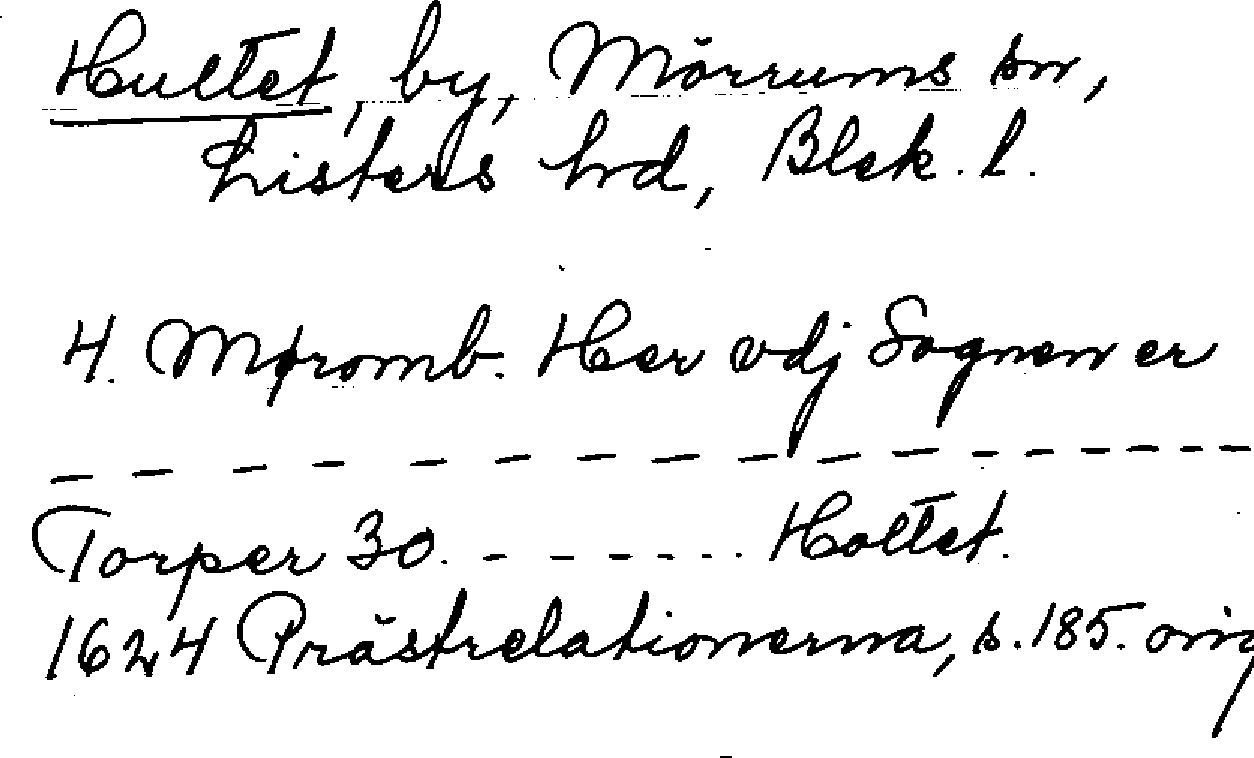 Hultet, by, Mörrums sn,
Listers hd, Blek. l.
4. Møromb. Her vdj Sognen er
- - - - - - - - - - - - - - -
Torper 30. - - - - - - . . Holtet.
1624 Prästrelationerna, s. 185. orig